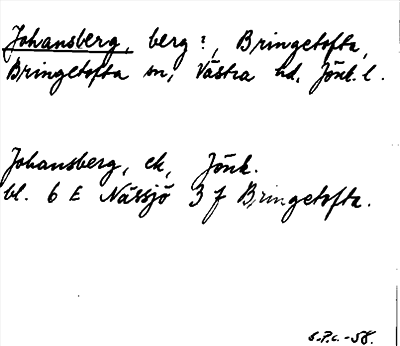 Johansberg, berg?, Bringetofta,
Bringetofta sn, Västra hd, Jönk. l.
Johansberg, ek, Jönk.
bl. 6 E Nässjö 3 f Bringetofta.
S.P.c. -58.